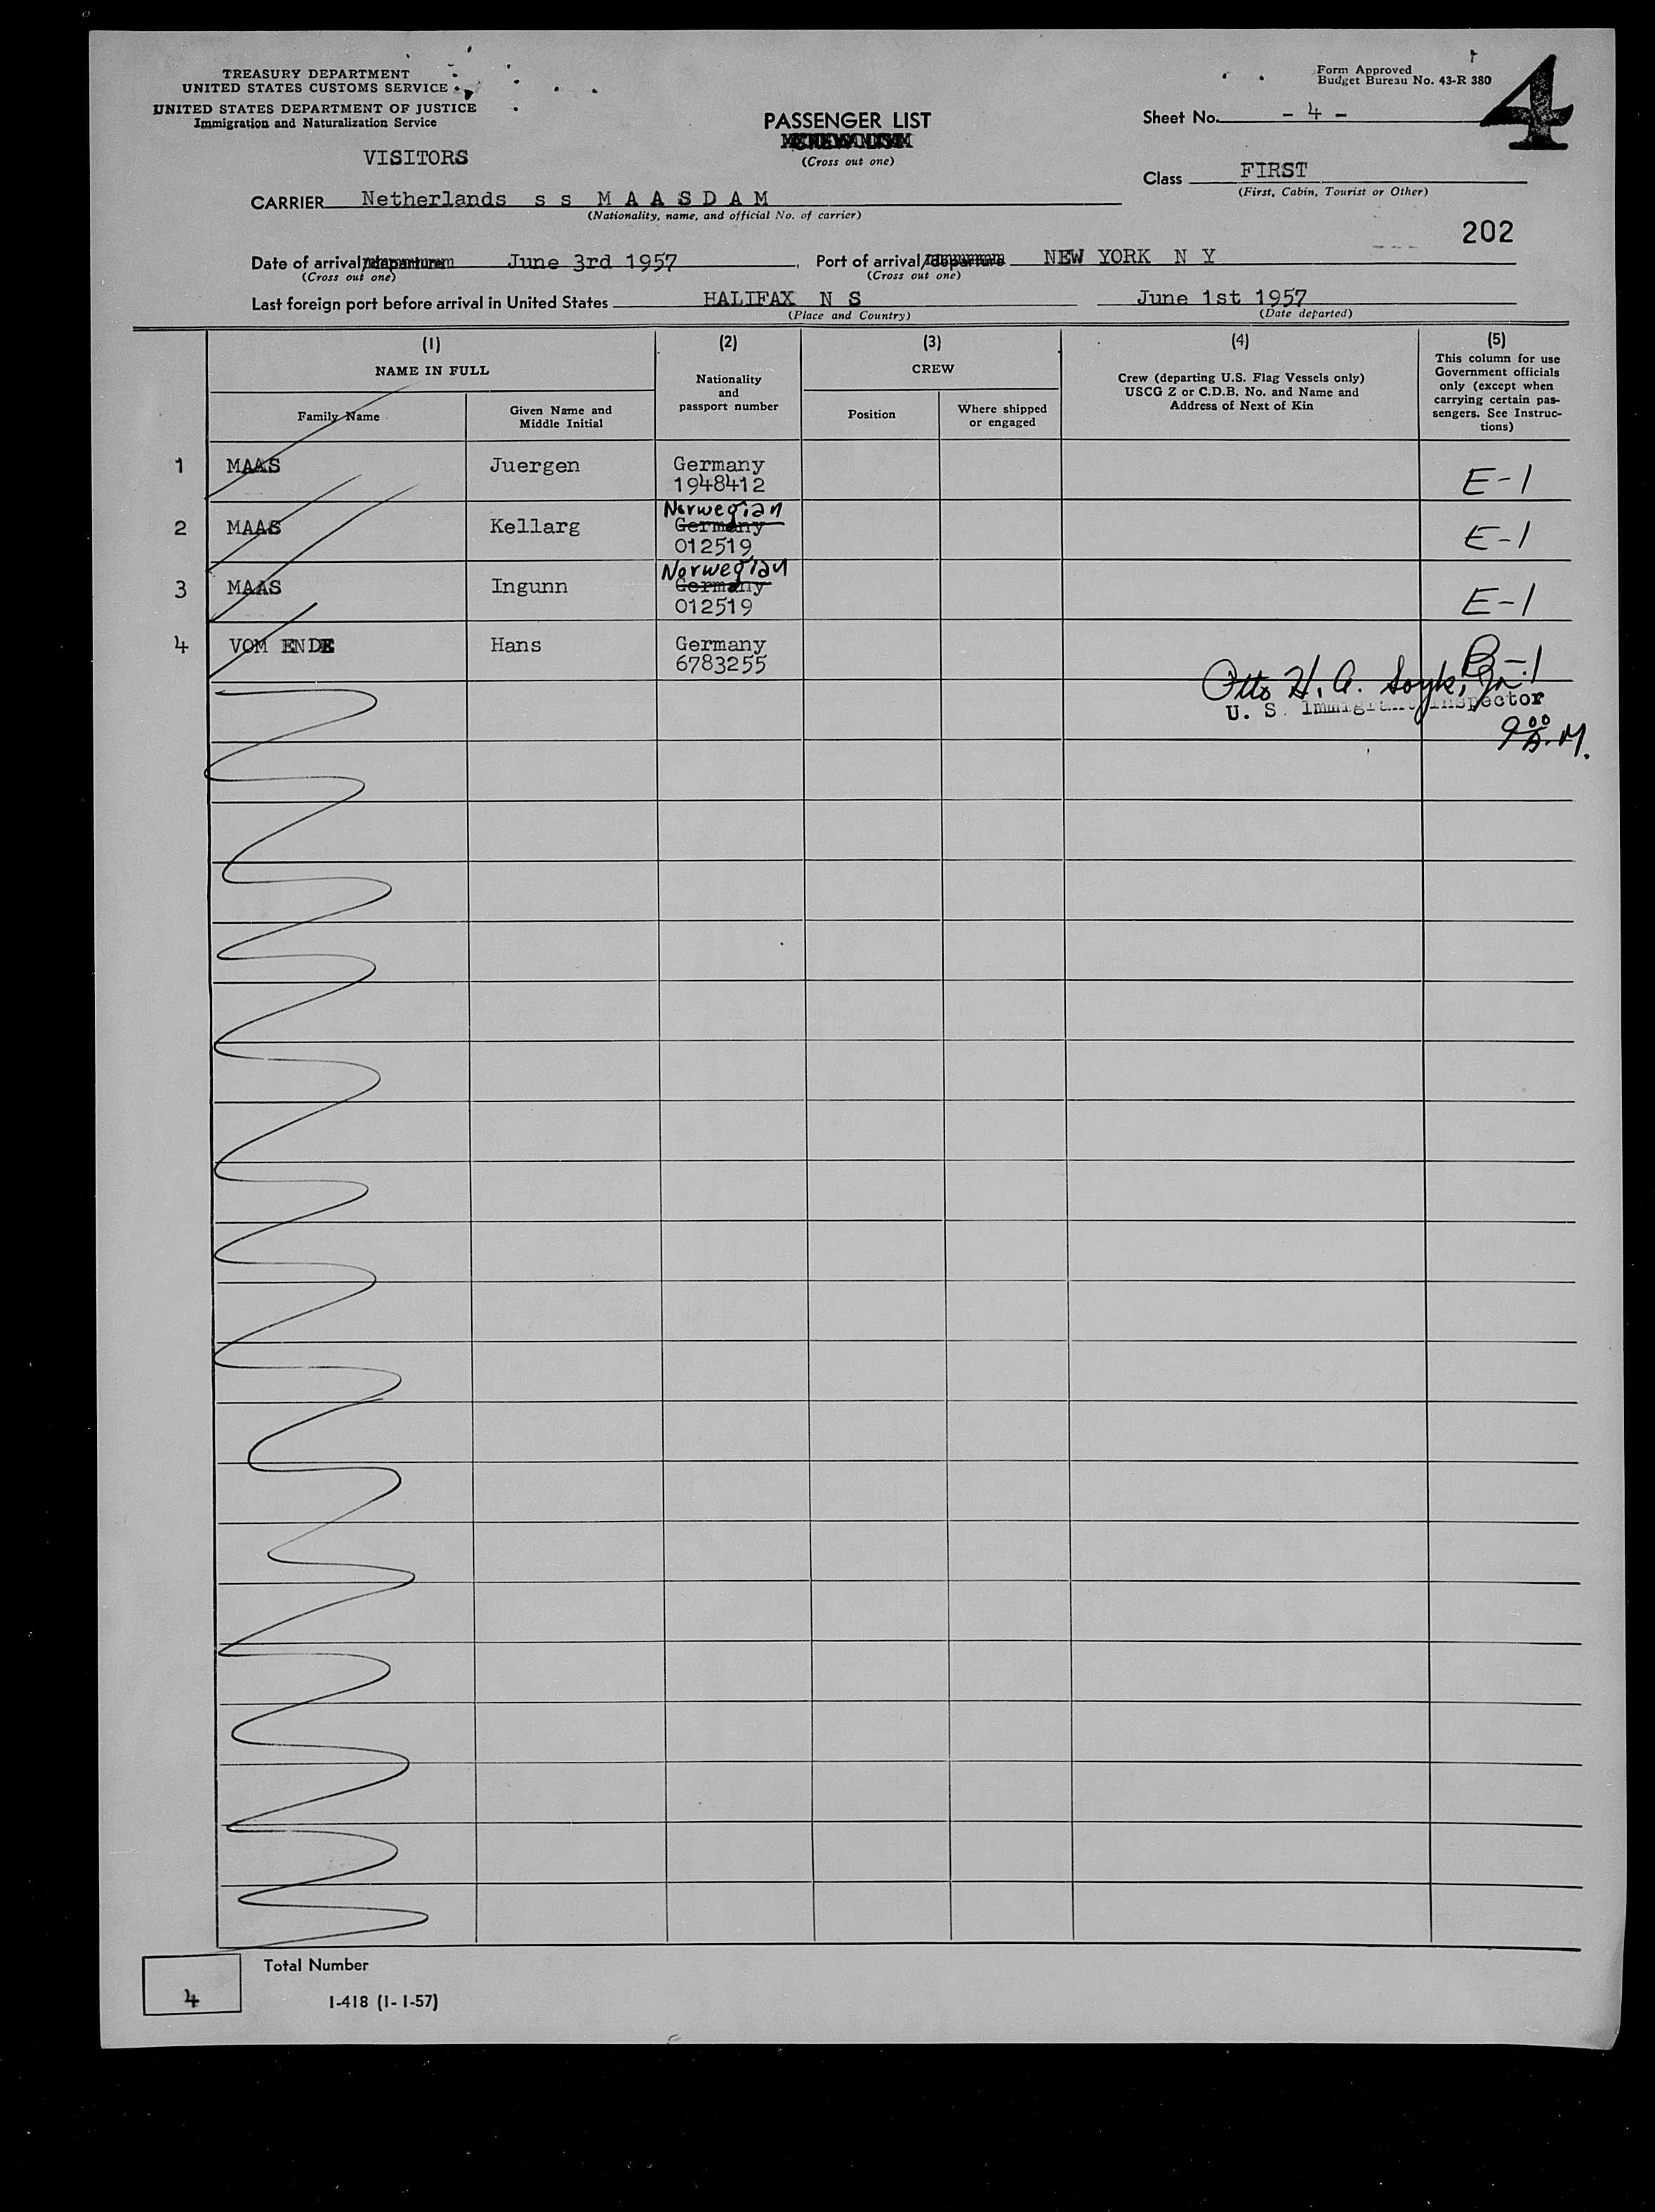 TREASURY DEPARTMENT
UNITED STATES CUSTOMS SERVICE
UNITED STATES DEPARTMENT OF JUSTICE
Immigration and Naturalization Service
Form Approved
Budget Bureau No. 43-R 380
4
PASSENGER LIST
(Cross out one)
Sheet No. - 4 -
VISITORS
Class FIRST
(First, Cabin, Tourist or Other)
CARRIER Netherlands s s M A A S D A M
(Nationality, name, and official No. of carrier)
202
Date of arrival/departure June 3rd 1957, Port of arrival/departure NEW YORK N Y
(Cross out one) (Cross out one)
Last foreign port before arrival in United States HALIFAX N S June 1st 1957
(Place and Country) (Date departed)
(1) (2) (3) (4) (5)
NAME IN FULL
Family Name
Given Name and
Middle Initial
Nationality
and
passport number
CREW
Position
Where shipped
or engaged
Crew (departing U.S. Flag Vessels only)
USCG Z or C.D.B. No. and Name and
Address of Next of Kin
This column for use
Government officials
only (except when
carrying certain pas-
sengers. See Instruc-
tions)
1 MAAS Juergen Germany E-1
1948412
Norwegian
2 MAAS Kellarg Germany E-1
012519
Norwegian
3 MAAS Ingunn Germany E-1
012519
4 VOM ENDE Hans Germany B-1
6783255
Otto H. A. Soyk, Jr.
U. S. Immigrant Inspector
9 00 A.M.
Total Number
4
I-418 (1-1-57)